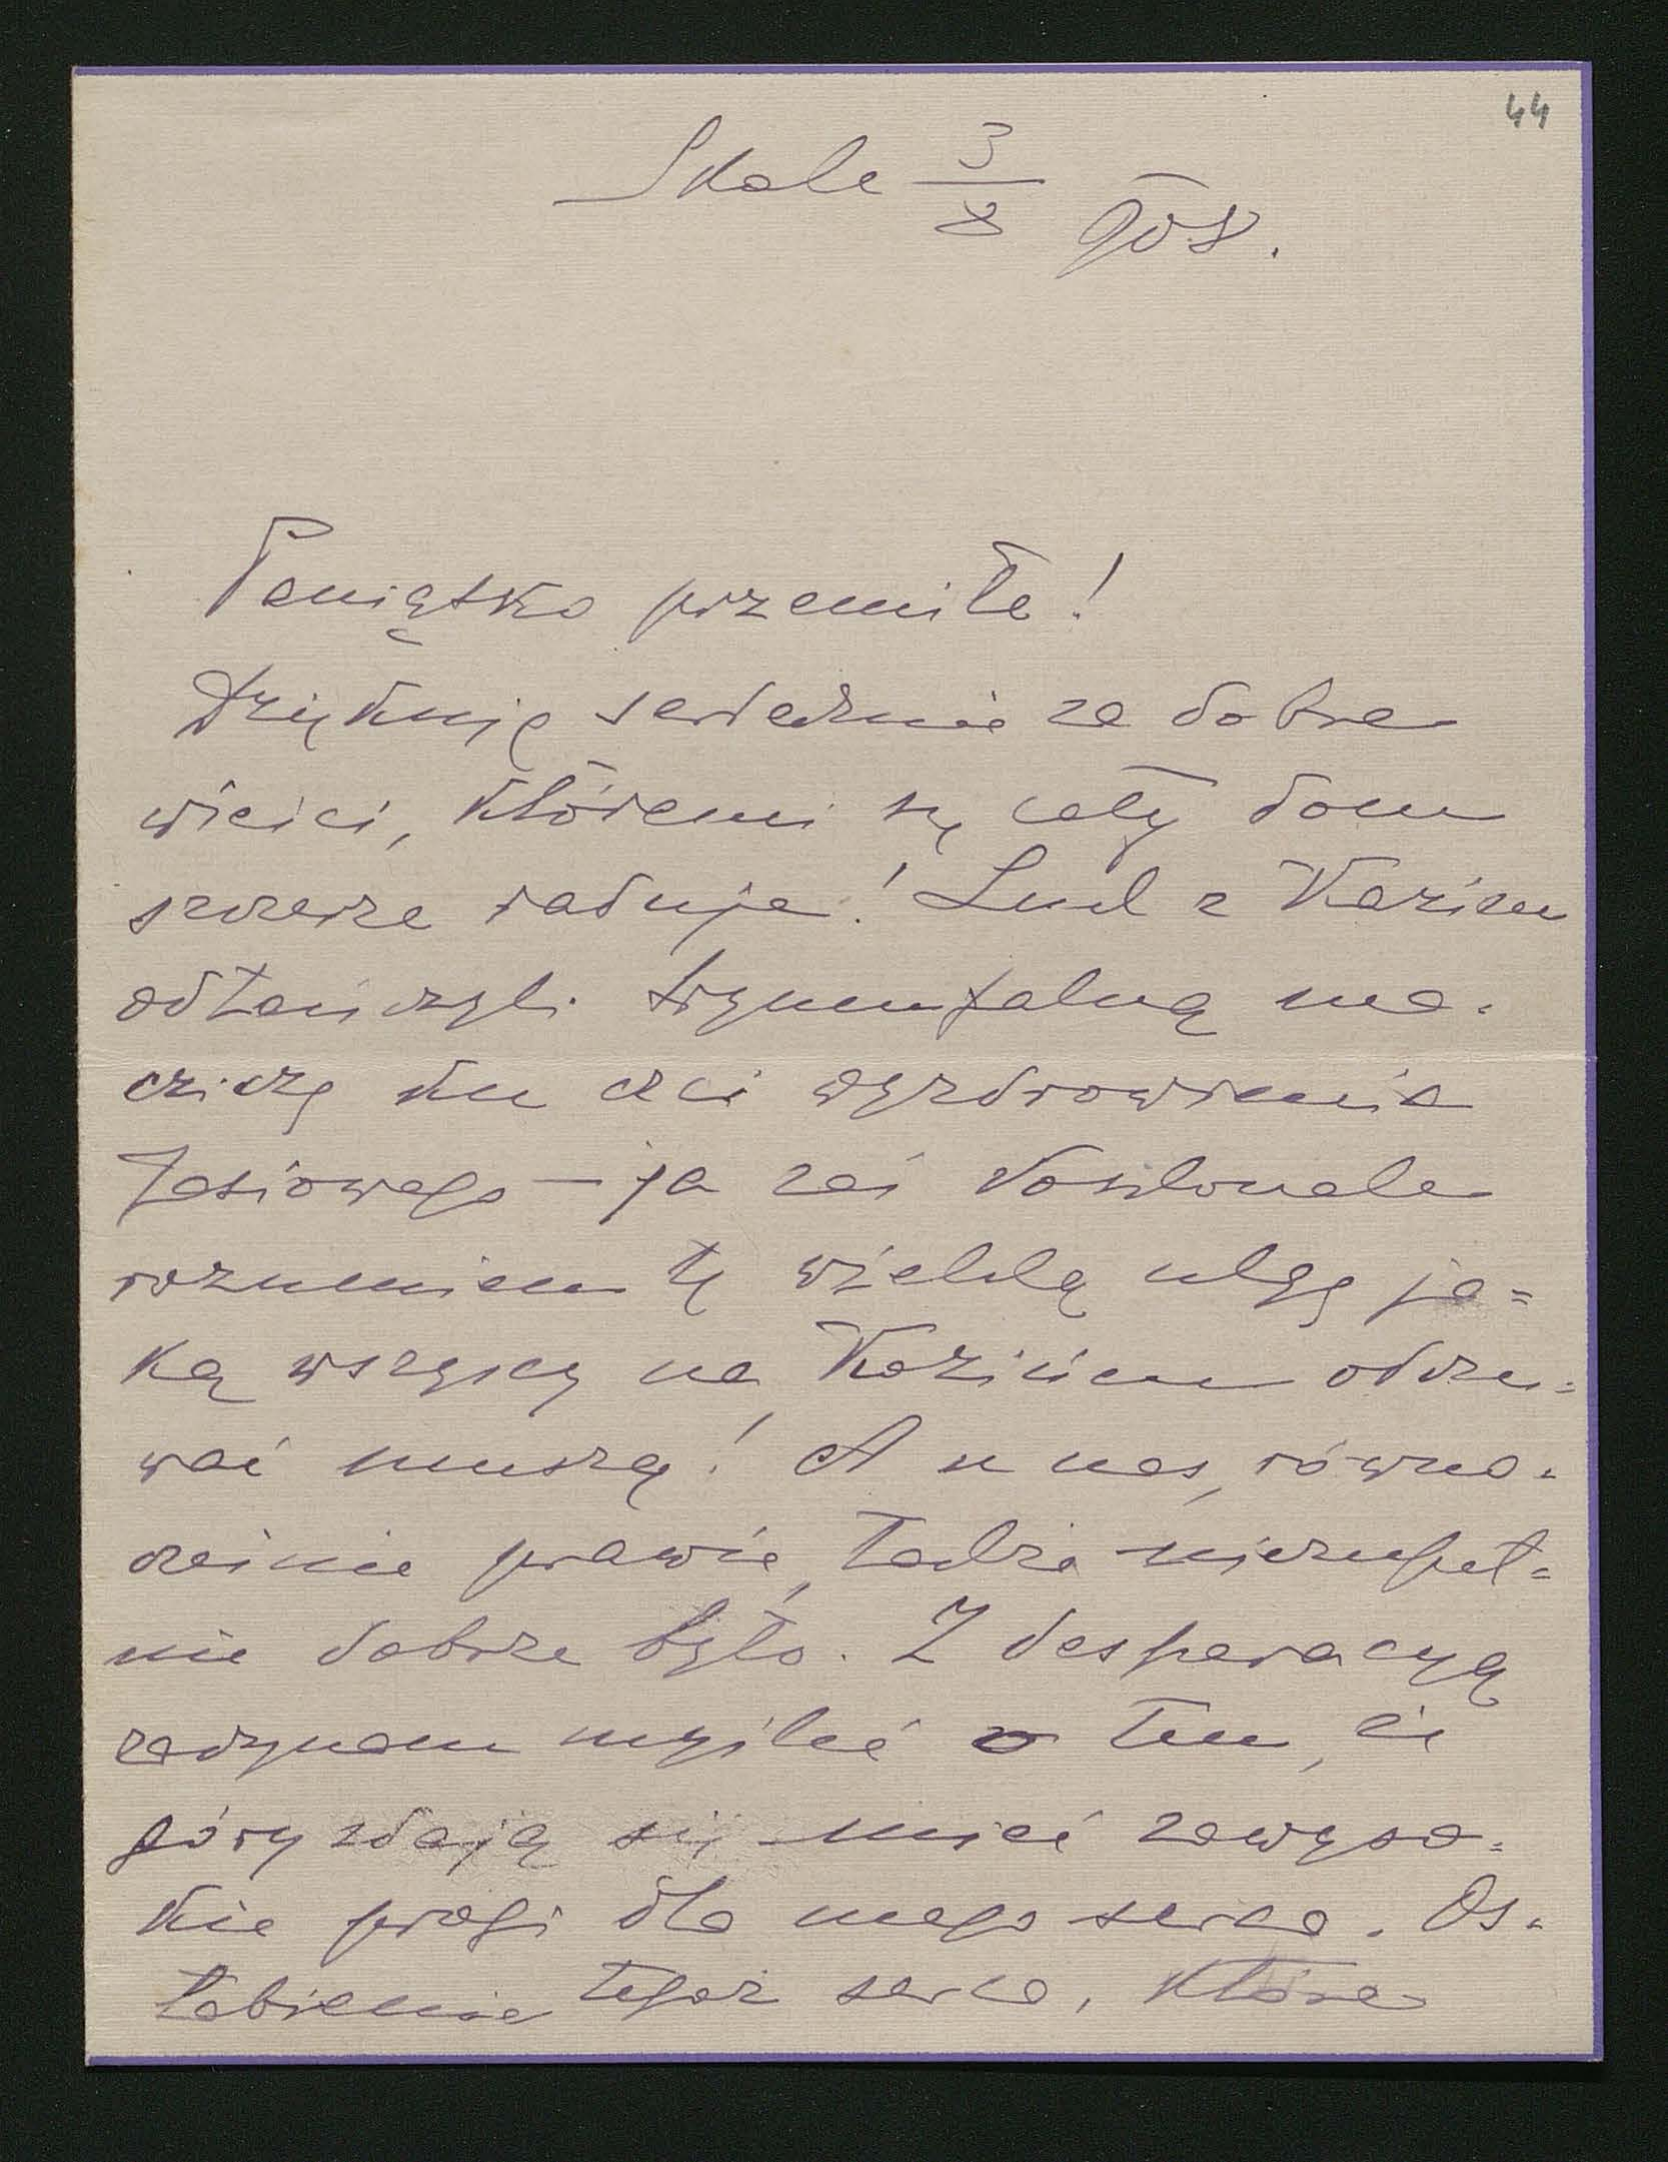 44
Skole 3/8 908.
Paniątko przemiłe!
Dziękuję serdecznie za dobre
wieści, któremi się cały dom
szczerze raduje! Lud z Kaziem
odtańczyli tryumfalną ma-
cziczę ku czci wyzdrowienia
Jasiowego — ja zaś doskonale
rozumiem tę wielką ulgę ja=
ką wszyscy na Kozińcu odczu=
wać muszą! A u nas, równo-
cześnie prawie, także niezupeł=
nie dobrze było. Z desperacyą
zaczynam myśleć o tem, że
góry zdają się mieć zawyso-
kie progi dla mego serca. Os-
łabienie tegoż serca, które